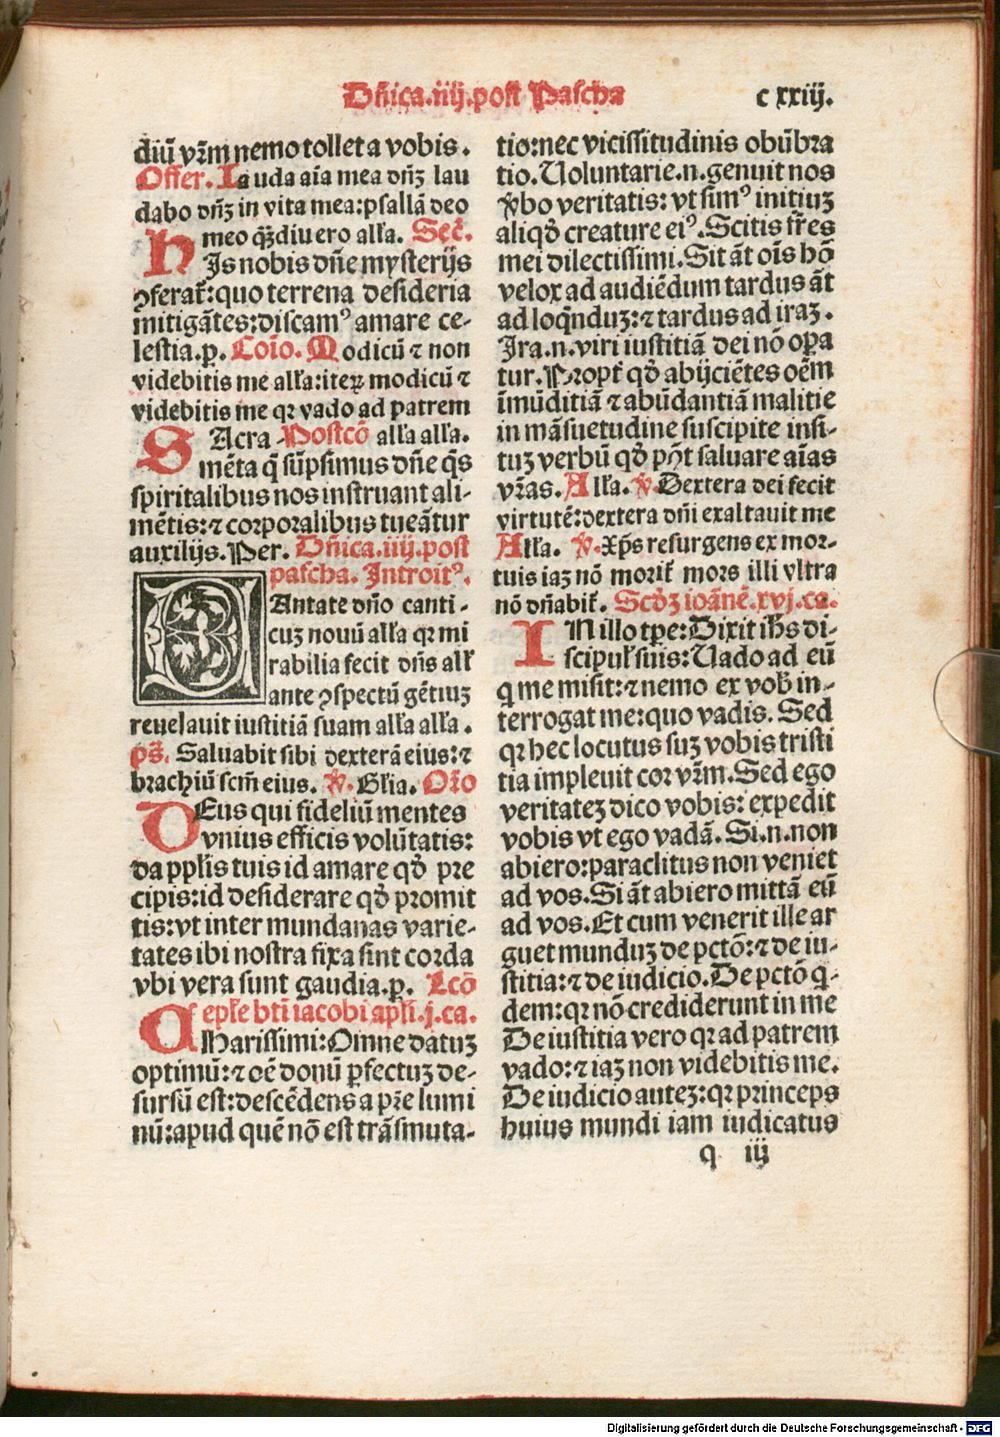 Dñica.iiij.post Pascha
cxxiij.
diũ vr̃m nemo tollet a vobis.
Offer. Lauda aĩa mea dñʒ lau
dabo dñʒ in vita mea: psallã deo
meo qʒ̃diu ero alľa. Sec̃.
HIs nobis dñe mysterijs
ꝯferat̃: quo terrena desideria
mitigãtes: discamꝰ amare ce-
lestia.p. Coĩo. Modicũ ⁊ non
videbitis me alľa: iteꝝ modicũ ⁊
videbitis me qꝛ vado ad patrem
SAcra Postcõ alľa alľa.
mẽta q̃ sũpsimus dñe q̃s
spiritalibus nos instruant ali-
mẽtis: ⁊ corporalibus tueãtur
auxilijs. Per. Dñica.iiij.post
pascha. Introitꝰ.
CAntate dño canti-
cuʒ nouũ alľa qꝛ mi
rabilia fecit dñs alľ
ante ꝯspectũ gẽtiuʒ
reuelauit iustitiã suam alľa alľa.
ps̃. Saluabit sibi dexterã eius: ⁊
brachiũ scm̃ eius. ℣. Glia. Or̃o
DEus qui fideliũ mentes
vnius efficis volũtatis:
da pplis tuis id amare qđ pre
cipis: id desiderare qđ promit
tis: vt inter mundanas varie-
tates ibi nostra fixa sint corda
vbi vera sunt gaudia.p. Lcõ
epľe bti̇̃ iacobi apľi.j.ca.
CHarissimi: Omne datuʒ
optimũ: ⁊ oẽ donũ ꝑfectuʒ de-
sursũ est: descẽdens a pr̃e lumi
nũ: apud quẽ nõ est trãsmuta-
tio: nec vicissitudinis obũbra
tio. Uoluntarie.n.genuit nos
v̾bo veritatis: vt simꝰ initiuʒ
aliqđ creature eiꝰ. Scitis fr̃es
mei dilectissimi. Sit ãt oĩs hõ
velox ad audiẽdum tardus ãt
ad loq̃nduʒ: ⁊ tardus ad iraʒ.
Ira.n.viri iustitiã dei nõ oꝑa
tur. Propt̃ qđ abijciẽtes oẽm
ĩmũditiã ⁊ abũdantiã malitie
in mãsuetudine suscipite insi-
tuʒ verbũ qđ põt saluare aĩas
vr̃as. Alľa. ℣. Dextera dei fecit
virtutẽ: dextera dñi exaltauit me
Alľa. ℣. Xp̃s resurgens ex mor-
tuis iaʒ nõ morit̃ mors illi vltra
nõ dñabit̃. Scđʒ ioãnẽ.xvj.ca.
IN illo tp̃e: Dixit ih̃s di-
scipuľ suis: Uado ad eũ
q̇ me misit: ⁊ nemo ex vob̃ in-
terrogat me: quo vadis. Sed
qꝛ hec locutus suʒ vobis tristi
tia impleuit cor vr̃m. Sed ego
veritateʒ dico vobis: expedit
vobis vt ego vadã. Si.n.non
abiero: paraclitus non veniet
ad vos. Si ãt abiero mittã eũ
ad vos. Et cum venerit ille ar
guet munduʒ de pctõ: ⁊ de iu-
stitia: ⁊ de iudicio. De pctõ q̇-
dem: qꝛ nõ crediderunt in me
De iustitia vero qꝛ ad patrem
vado: ⁊ iaʒ non videbitis me.
De iudicio auteʒ: qꝛ princeps
huius mundi iam iudicatus
q iij
Digitalisierung gefördert durch die Deutsche Forschungsgemeinschaft - DFG